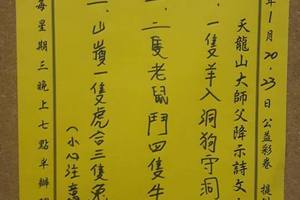 年1月20.23日公益彩卷
天龍山大師父降示詩文
一隻羊入洞狗守洞
二隻老鼠鬥四隻牛
山嶺一隻虎合三隻兎
(小心注意
每星期三晚上七點半辦